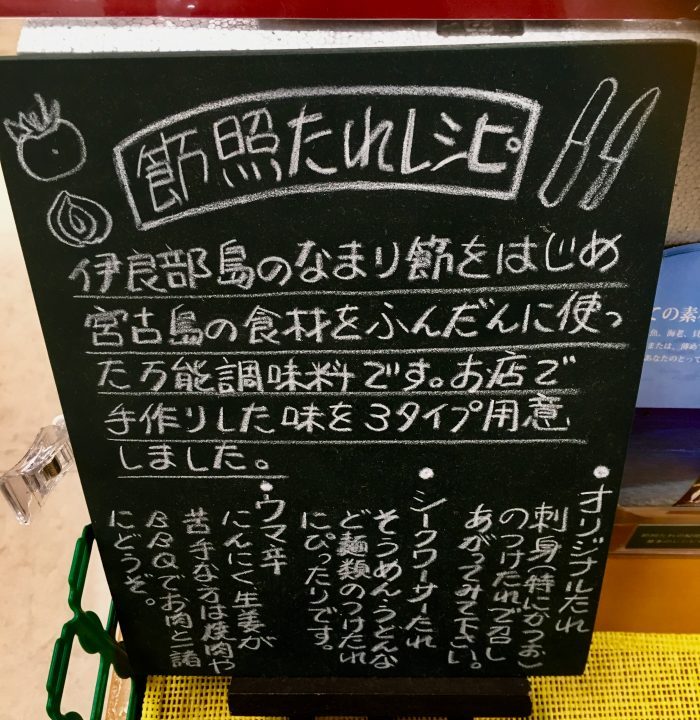 節照たれレシピ
伊良部島のなまり節をはじめ
宮古島の食材をふんだんに使っ
た万能調味料です。お店で
手作りした味を3タイプ用意
しました。
・オリジナルたれ
刺身(特にかつお)
のつけたれで召し
あがってみて下さい。
・シークワーサーたれ
そうめん・うどんな
ど麺類のつけたれ
にぴったりです。
・ウマ辛
にんにく生姜が
苦手な方は焼肉や
BBQでお肉と一諸
にどうぞ。
ての素